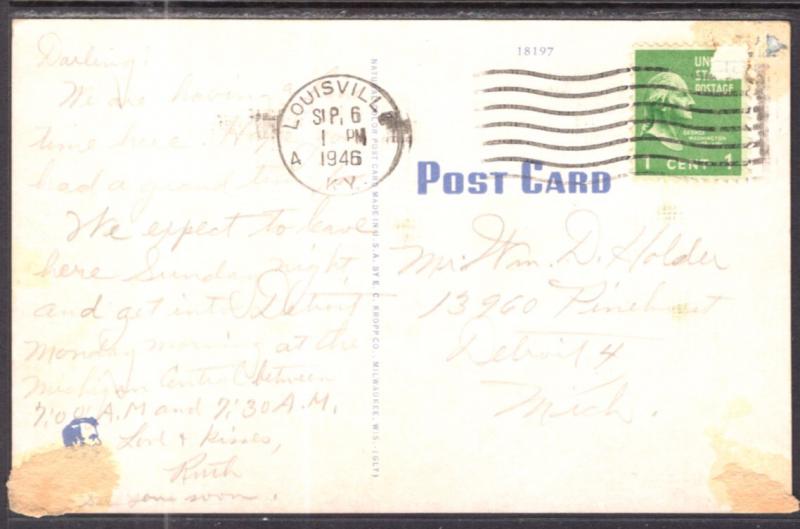 Darling!
We are having a
time here.
had a grand
We expect to leave
here Sunday night
and get into Detroit
Monday morning at the
Michigan Central between
7:00 A.M and 7:30 A.M.
Love & Kisses,
Ruth
see you soon.
NATURAL COLOR POST CARD MADE IN U.S.A. BY E. C. KROPP CO., MILWAUKEE, WIS. (GLT)
18197
LOUISVILLE
SEP 6
1 PM
1946
KY.
4
UNITED
STATES
POSTAGE
GEORGE
WASHINGTON
1 CENT 1
POST CARD
Mr. Wm. D. Holder
13960 Pinehurst
Detroit 4
Mich.